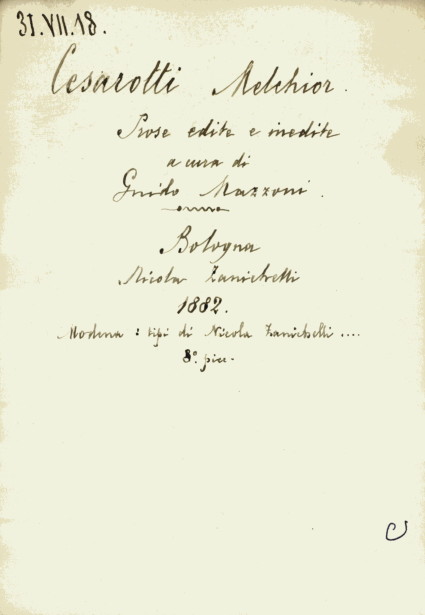 31.VII.18.
Cesarotti Melchior.
Prose edite e inedite
a cura di
Guido Mazzoni.
Bologna
Nicola Zanichelli
1882.
Modena : tipi di Nicola Zanichelli ....
8º. picc.